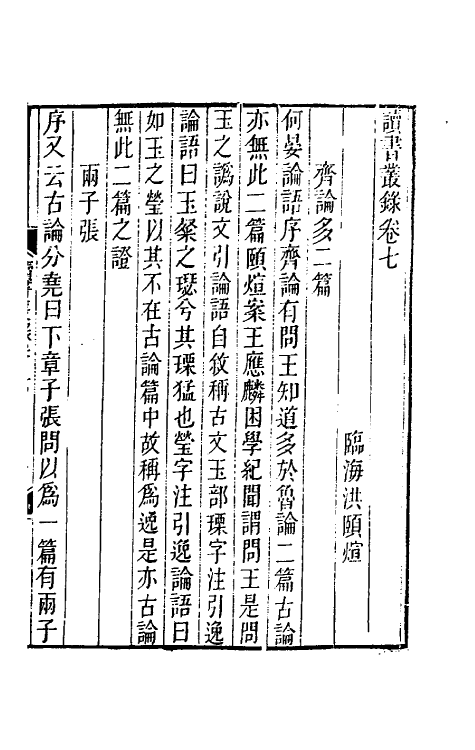 讀書叢錄卷七
臨海洪頤煊
齊論多二篇
何晏論語序齊論有問王知道多於魯論二篇古論
亦無此二篇頤煊案王應麟困學紀聞謂問王是問
玉之譌說文引論語自敘稱古文玉部瑮字注引逸
論語曰玉粲之瑟兮其瑮猛也瑩字注引逸論語曰
如玉之瑩以其不在古論篇中故稱爲逸是亦古論
無此二篇之證
兩子張
序又云古論分堯曰下章子張問以爲一篇有兩子